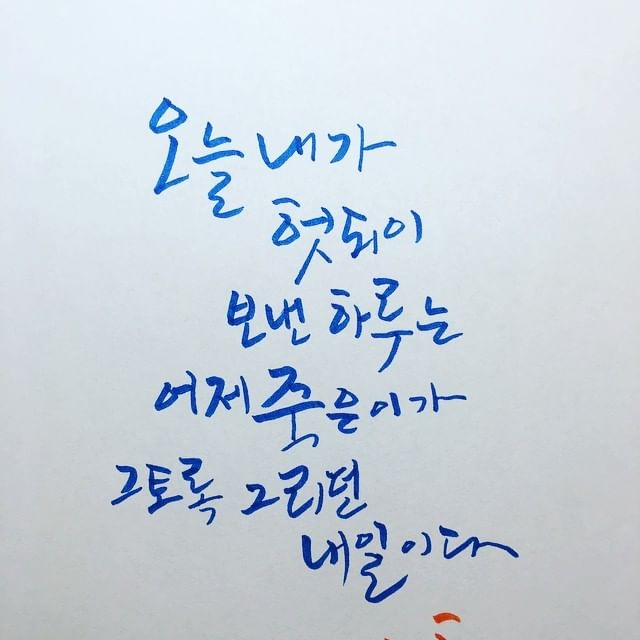 오늘 내가
헛되이
보낸 하루는
어제 죽은이가
그토록 그리던
내일이다